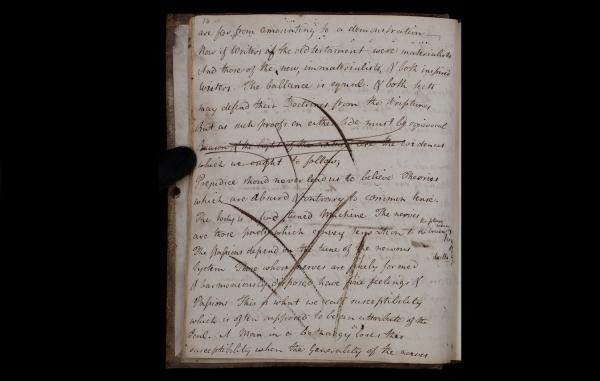 are far from amounting to a demonstration
Now if Writers of the old testament were materialists
And those of the new, immaterialists, & both inspired
Writers. The ballance is equal. & both sects
may defend their Doctrines from the Scriptures
But as such proofs on either side must be equivocal
Reason, & the light of the nature are the evidences
which we ought to follow,
Prejudice should never lead us to believe Theories
which are absurd & contrary to common sense.
The body is a fine tuned Machine The nerves
are those parts which convey sensation to the
The Passions depend on the tune of the nervous
System. Those whose nerves are finely formed
& harmoniously disposed have fine feelings &
Passions This is what we call susceptibility
which is often supposed to be an attribute of the
Soul. A Man in a Lethargy loses this
susceptibility when the Generality of the nerves